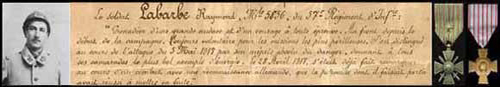 Le soldat Labarbe Raymond, Mle 5636, du 57e Régiment d'Infie:
"Grenadier d'une grande audace et d'un courage à toute épreuve. Au front depuis le
début de la campagne. Toujours volontaire pour les missions les plus périlleuses. S'est distingué
au cours de l'attaque du 3 Mai 1917 par son mépris absolu du danger, donnant à tous
ses camarades le plus bel exemple d'énergie. Le 28 Avril 1917, s'était déjà fait remarquer
au cours d'un combat avec une reconnaissance allemande, que la patrouille dont il faisait partie
avait réussi à mettre en fuite.